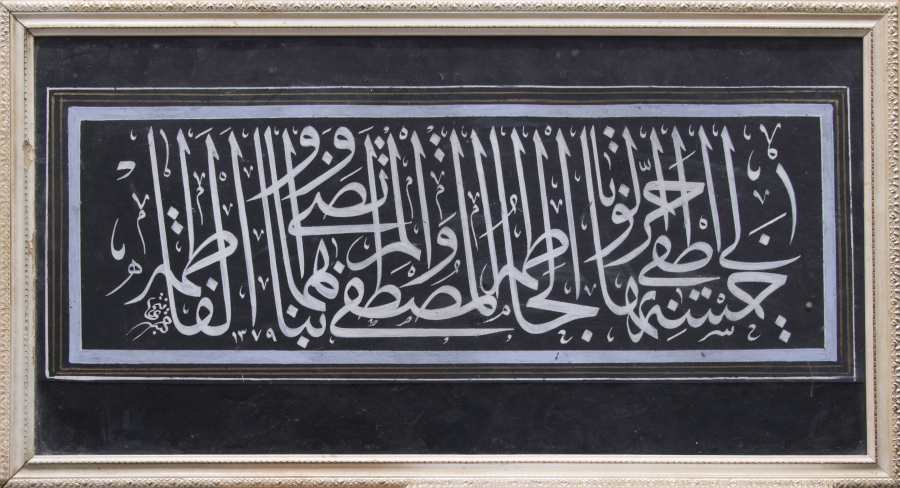 لي خمسة اطفى بها حر الوبا الحاطمة
المصطفى والمرتضى وابناهما والفاطمة
١٣٧٩